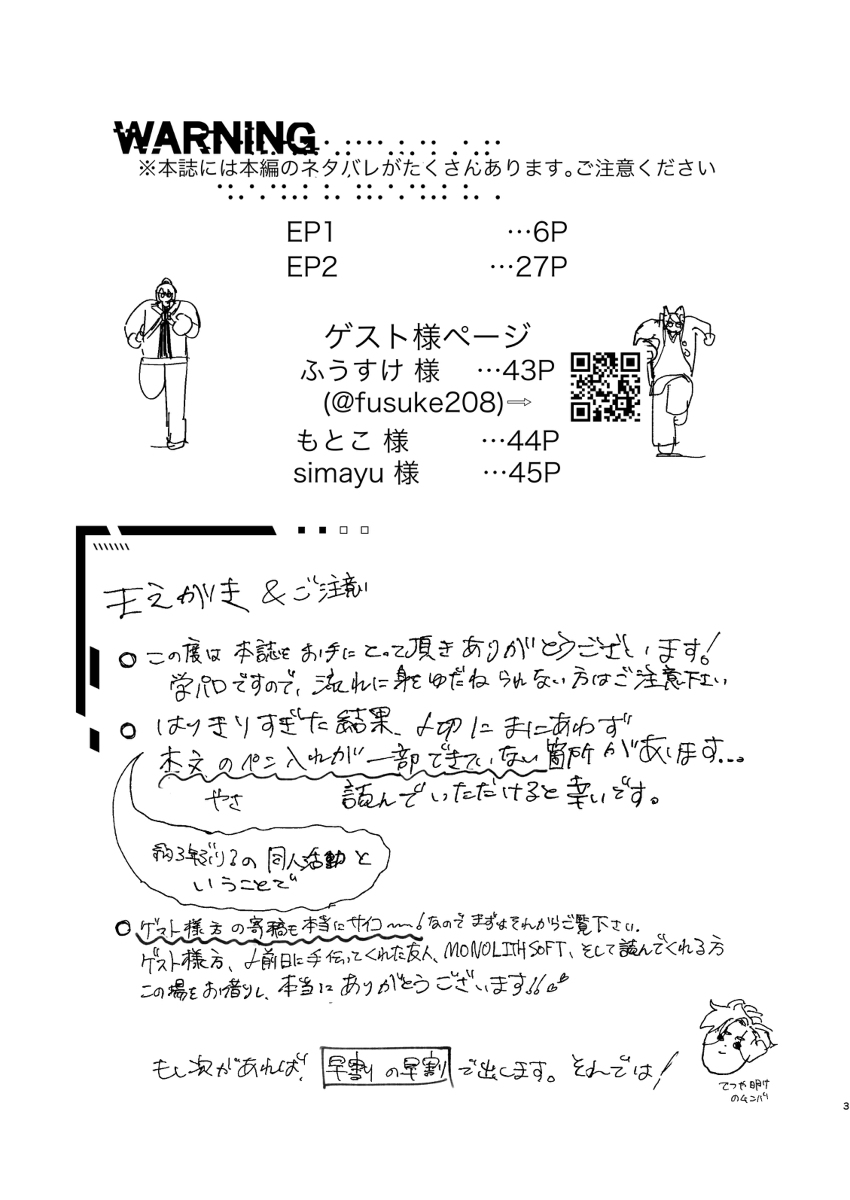 WARNING
※本誌には本編のネタバレがたくさんあります。ご注意ください
EP1 …6P
EP2 …27P
ゲスト様ページ
ふうすけ 様 …43P
(@fusuke208)⇨
もとこ 様 …44P
simayu 様 …45P
まえがき & ご注意
この度は 本誌を お手にとって頂き ありがとうございます!
学パロですので、流れに身をゆだねられない方はご注意下さい
はりきりすぎた結果、〆切に まにあわず
本文のペン入れが一部できていない箇所があります…
読んでいただけると幸いです。
約3年ぶり?の 同人活動と
いうことで
ゲスト様方の寄稿も本当にサイコー〜!なので まずはそれからご覧下さい。
ゲスト様方、〆前日に手伝ってくれた友人、MONOLITHSOFT、そして読んでくれる方
この場をお借りし、本当に ありがとうございます!!
もし次があれば、早割の早割で出します。それでは!
てつや明け
の
3